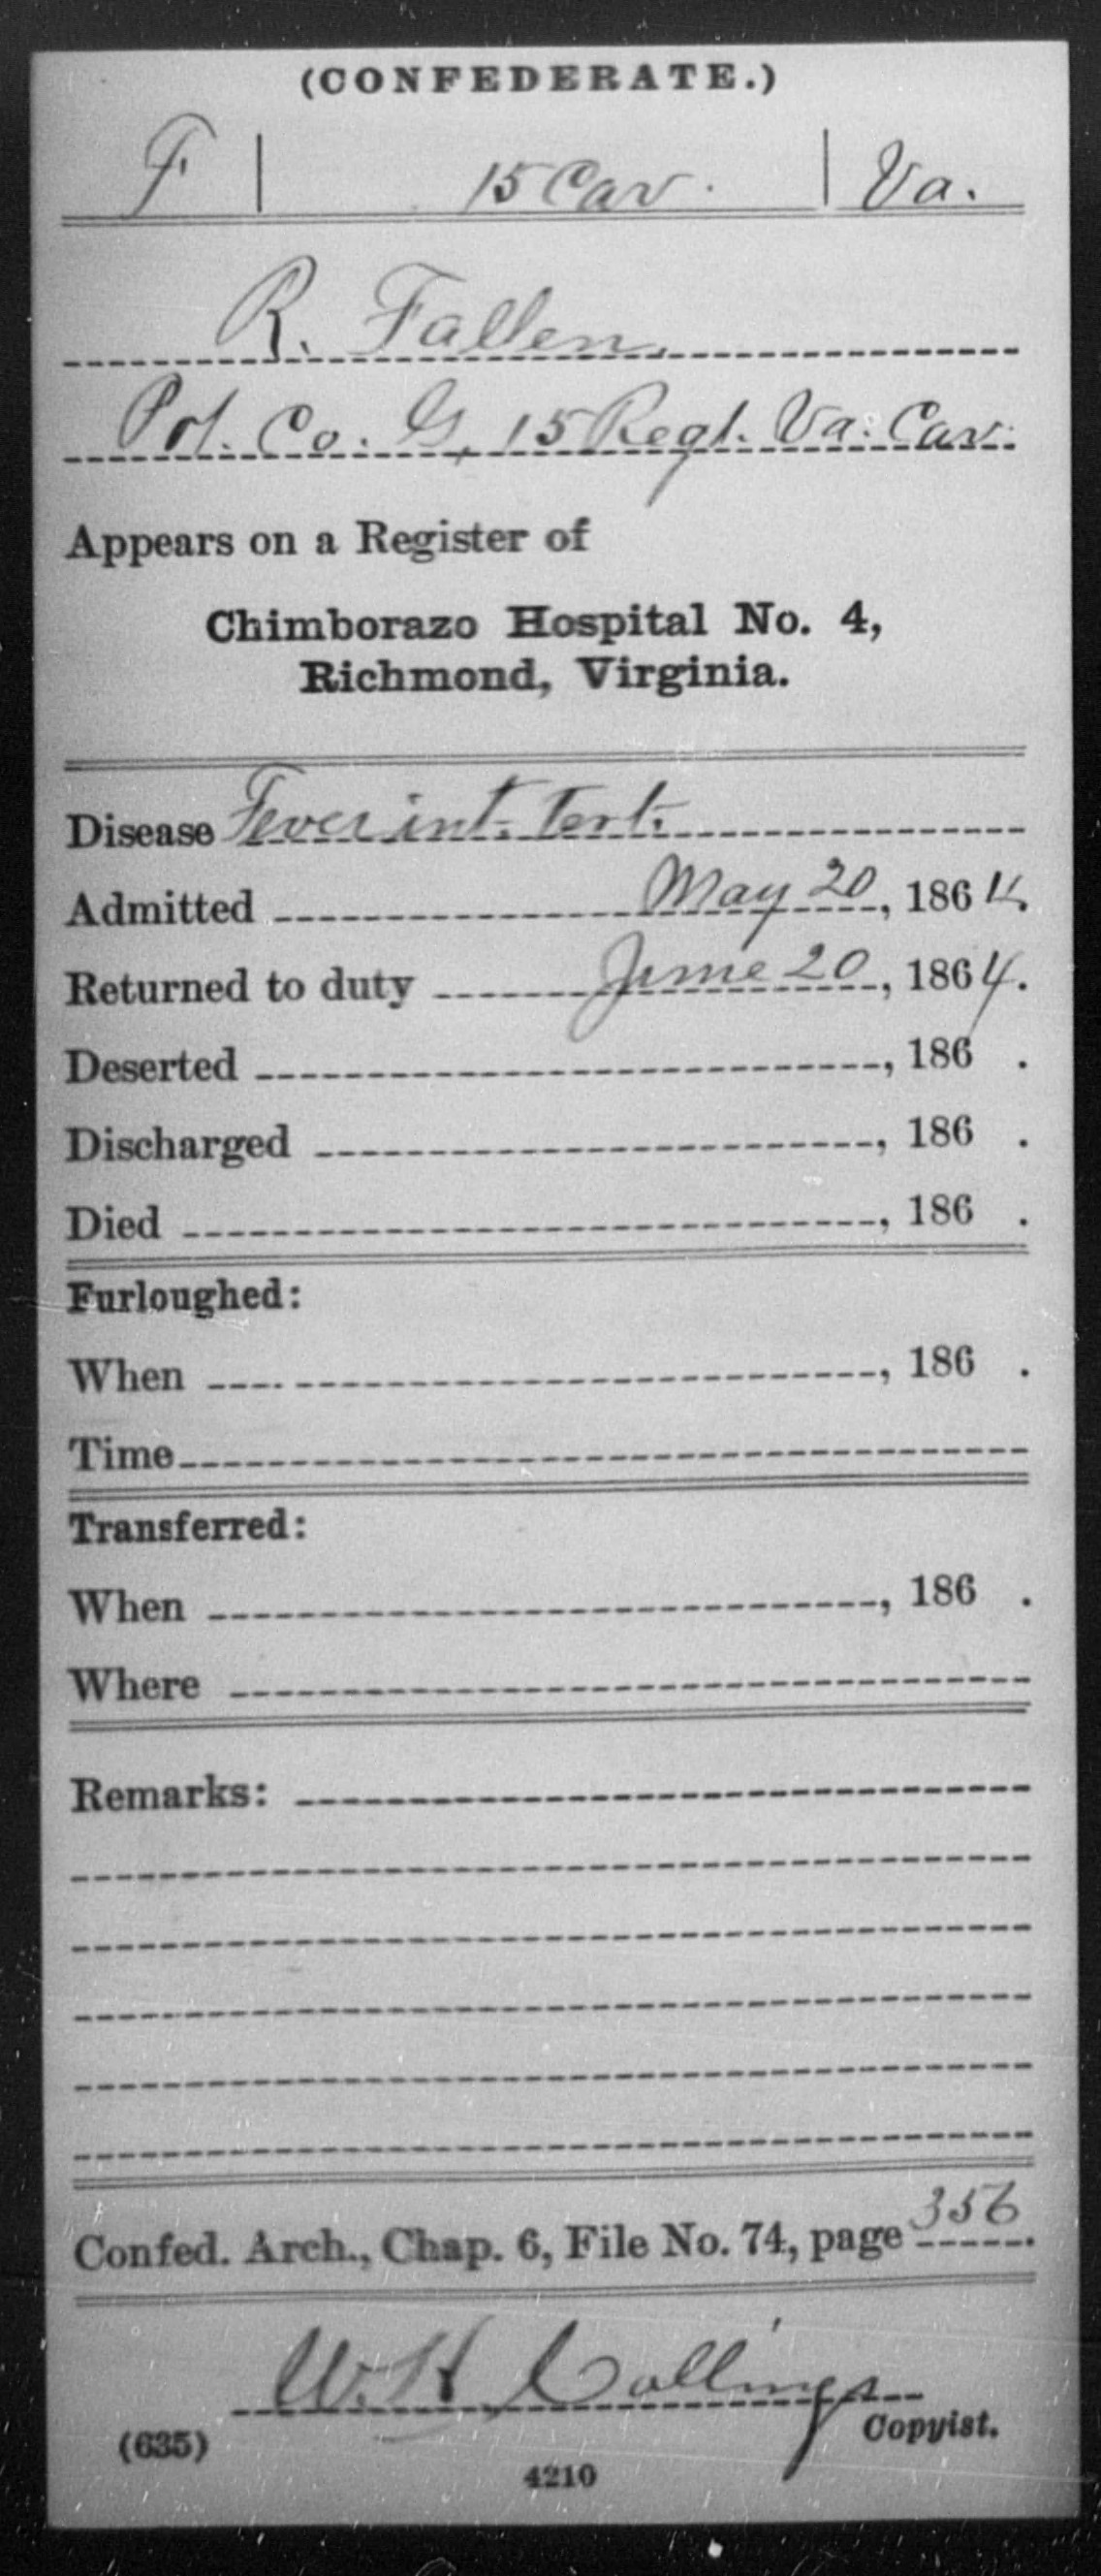 (CONFEDERATE.)
F | 15 Cav. | Va.
R. Fallen.
Pvt. Co. G, 15 Regt. Va. Cav.
Appears on a Register of
Chimborazo Hospital No. 4,
Richmond, Virginia.
Disease Fever int. tert.
Admitted May 20, 1864.
Returned to duty June 20, 1864.
Deserted , 186 .
Discharged , 186 .
Died , 186 .
Furloughed:
When , 186 .
Time
Transferred:
When , 186 .
Where
Remarks:
Confed. Arch., Chap. 6, File No. 74, page 356.
W. H. Collings
Copyist.
(635)
4210